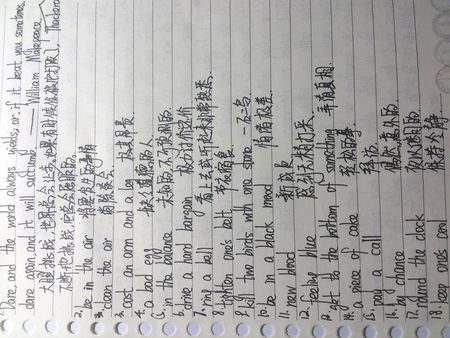 1. Dare, and the world always yields; or, if it beat you sometimes,
dare again, and it will succumb. —— William Makepeace Thackeray
大胆挑战，世界总会让步。如果有时候你被它打败了，
不断地挑战，它总会屈服的。
2. be in the air 将要发生的事情
3. clean the air 消除误会
4. cost an arm and a leg 极其昂贵
a bad egg 缺乏道德的人
in the balance 未知的，不可预测的
6. drive a hard bargain 极力讨价还价
7. ring a bell 看上去或听起来非常熟悉
8. tighten one's belt 节衣缩食
9. kill two birds with one stone 一石二鸟
10. be in a black mood 情绪极差
11. new blood 新成员
12. feeling blue 感到无精打采
13. get to the bottom of something 弄清真相
14. a piece of cake 轻松的事
15. pay a call 拜访
16. by chance 偶然，意外的
17. round the clock 夜以继日的
18. keep one's cool 保持冷静